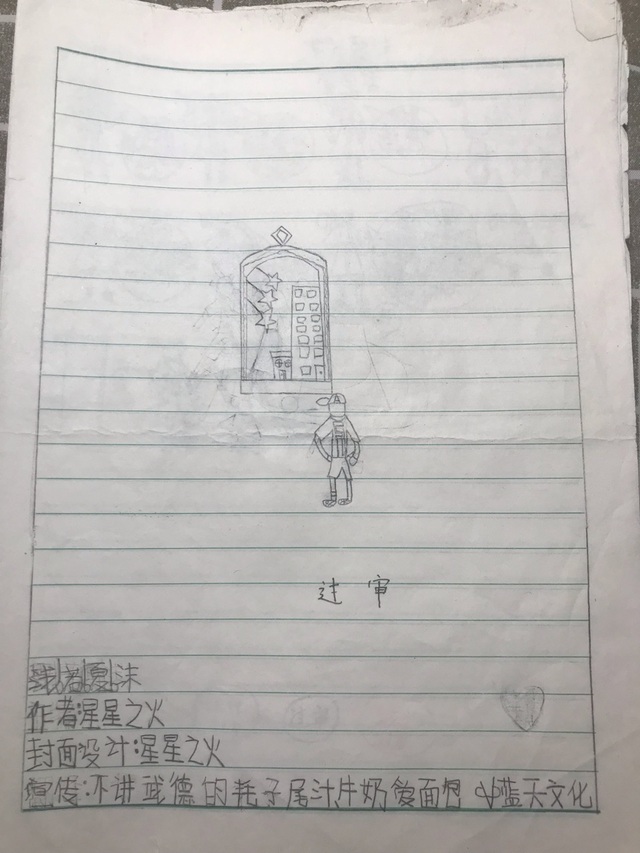 过审
夏沫
作者:星星之火
封面设计:星星之火
宣传:不讲武德的耗子尾汁,牛奶爱面包 蓝天文化